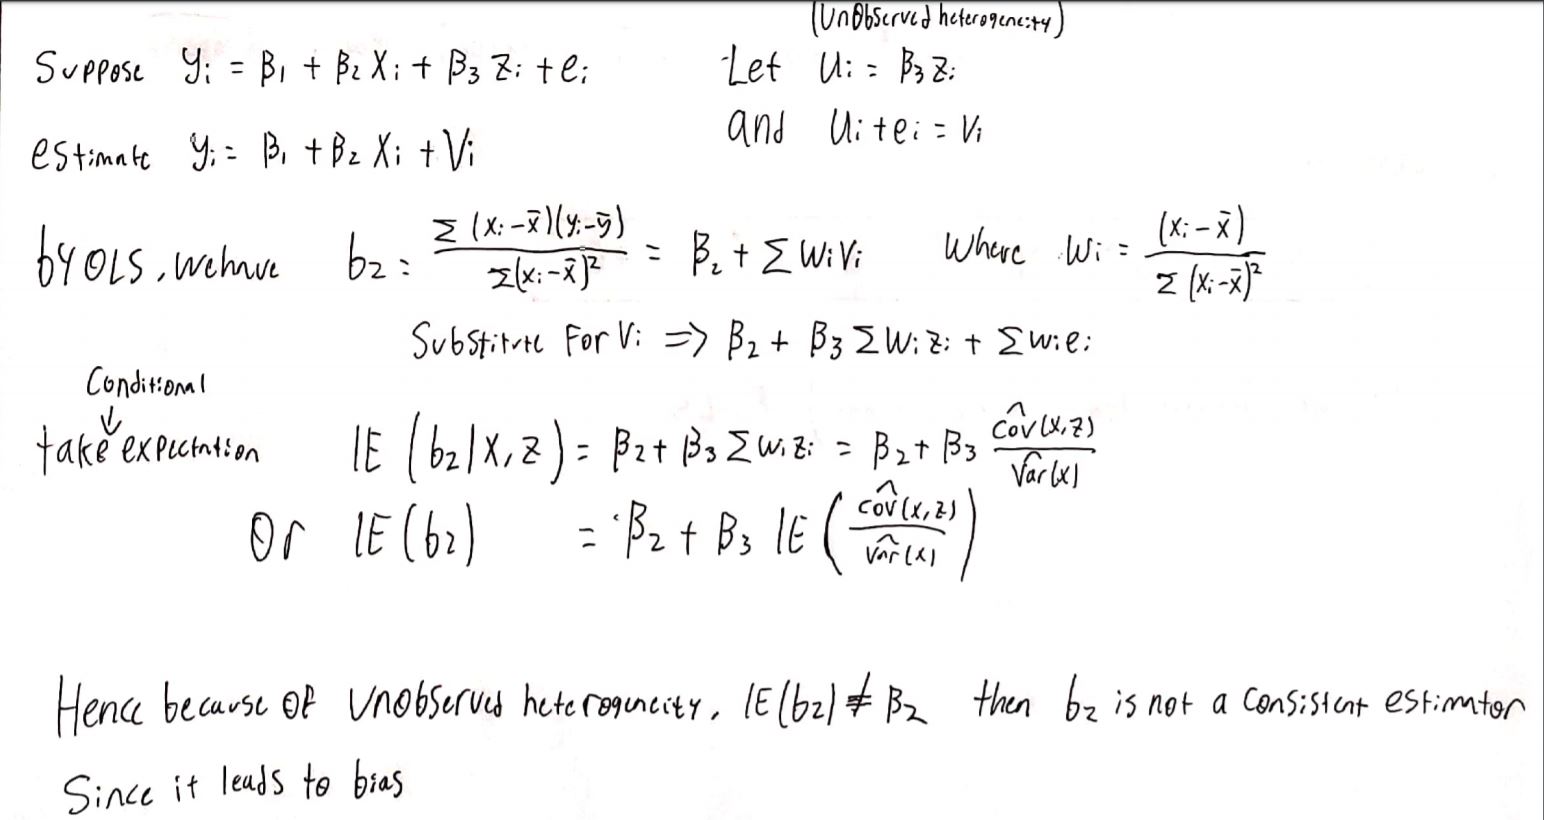 (Unobserved heterogeneity)
Suppose yᵢ = β₁ + β₂ Xᵢ + β₃ Zᵢ + eᵢ Let Uᵢ = β₃ Zᵢ
and Uᵢ + eᵢ = Vᵢ
estimate yᵢ = β₁ + β₂ Xᵢ + Vᵢ
by OLS, we have b₂ = Σ(xᵢ-x̄)(yᵢ-ȳ) / Σ(xᵢ-x̄)² = β₂ + Σ WᵢVᵢ Where Wᵢ = (xᵢ-x̄) / Σ(xᵢ-x̄)²
Substitute For Vᵢ => β₂ + β₃ Σ Wᵢ Zᵢ + Σ wᵢeᵢ
Conditional
↓
take expectation IE (b₂|X,Z) = β₂ + β₃ Σ wᵢ zᵢ = β₂ + β₃ Côv(X,Z) / Vâr(X)
Or IE(b₂) = β₂ + β₃ IE (Côv(X,Z) / Vâr(X))
Hence because of Unobserved heterogeneity, IE(b₂) ≠ β₂ then b₂ is not a consistent estimator
Since it leads to bias